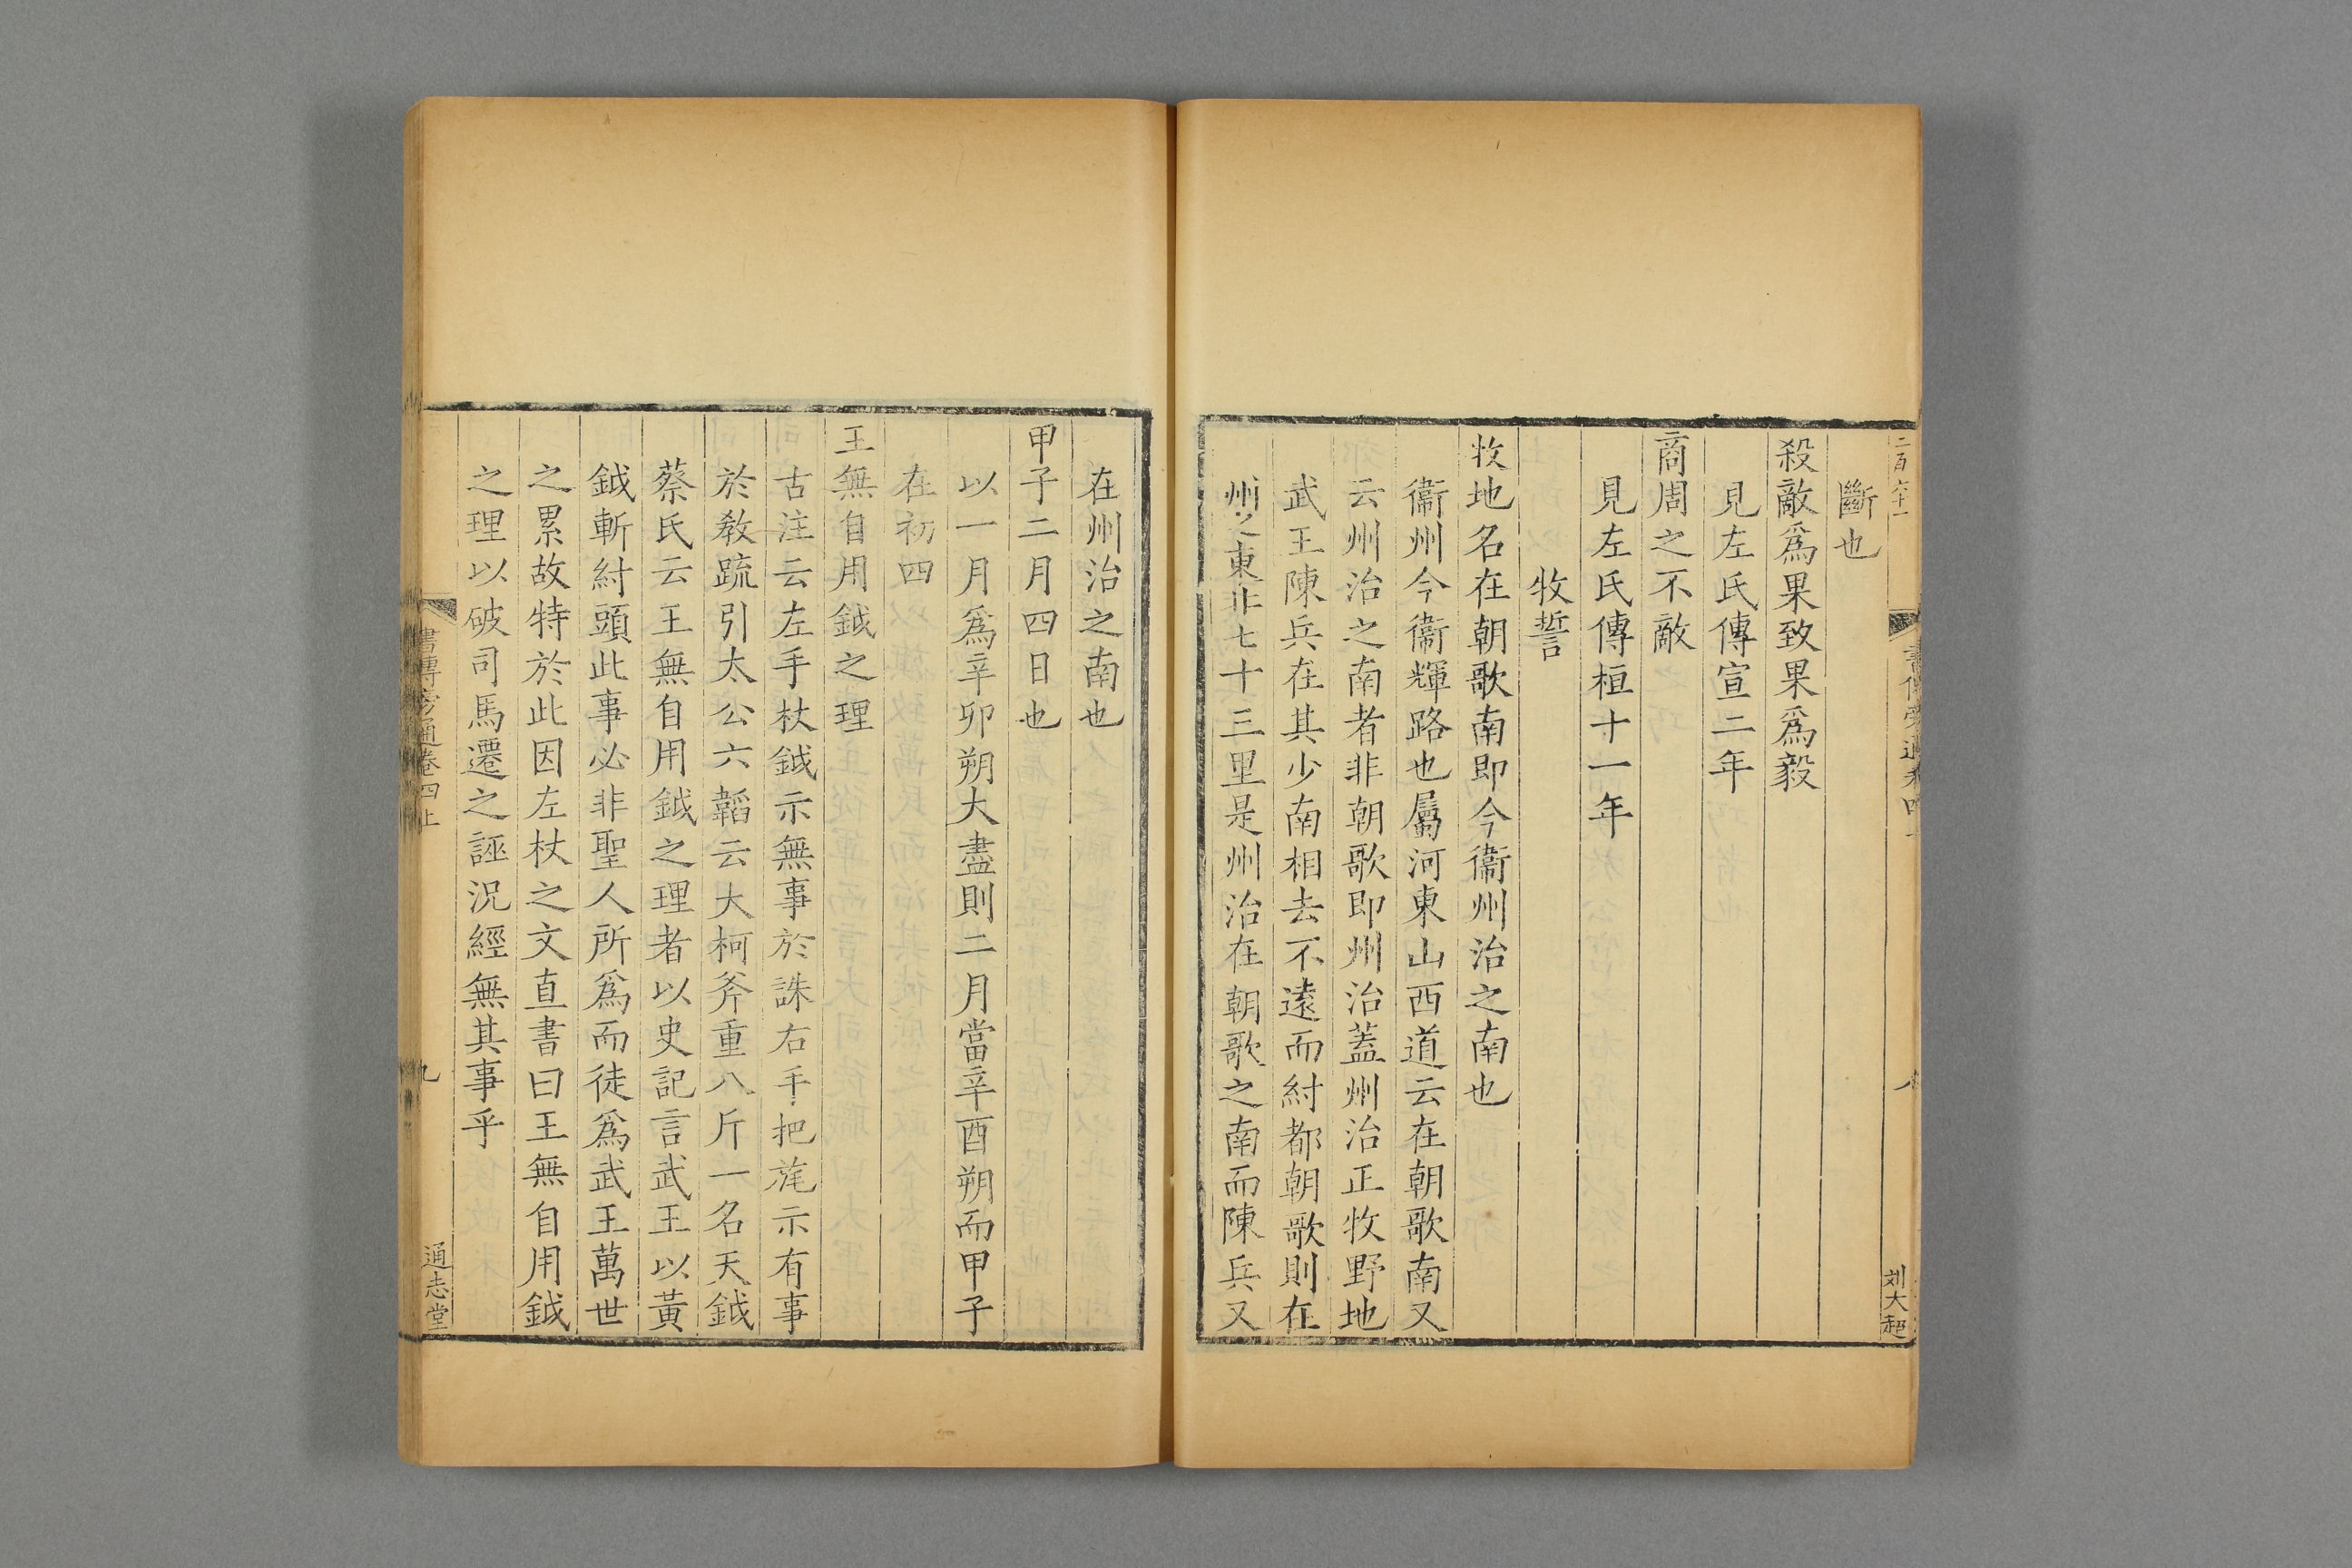 二百六十一
斷也
殺敵爲果致果爲毅
見左氏傳宣二年
商周之不敵
見左氏傳桓十一年
牧誓
牧地名在朝歌南即今衞州治之南也
衞州今衞輝路也屬河東山西道云在朝歌南又
云州治之南者非朝歌即州治蓋州治正牧野地
武王陳兵在其少南相去不遠而紂都朝歌則在
州之東北七十三里是州治在朝歌之南而陳兵又
刘大超
在州治之南也
甲子二月四日也
以一月爲辛卯朔大盡則二月當辛酉朔而甲子
在初四
王無自用鉞之理
古注云左手杖鉞示無事於誅右手把旄示有事
於敎䟽引太公六韜云大柯斧重八斤一名天鉞
蔡氏云王無自用鉞之理者以史記言武王以黃
鉞斬紂頭此事必非聖人所爲而徒爲武王萬世
之累故特於此因左杖之文直書曰王無自用鉞
之理以破司馬遷之誣況經無其事乎
書傳旁通卷四上
九
通志堂